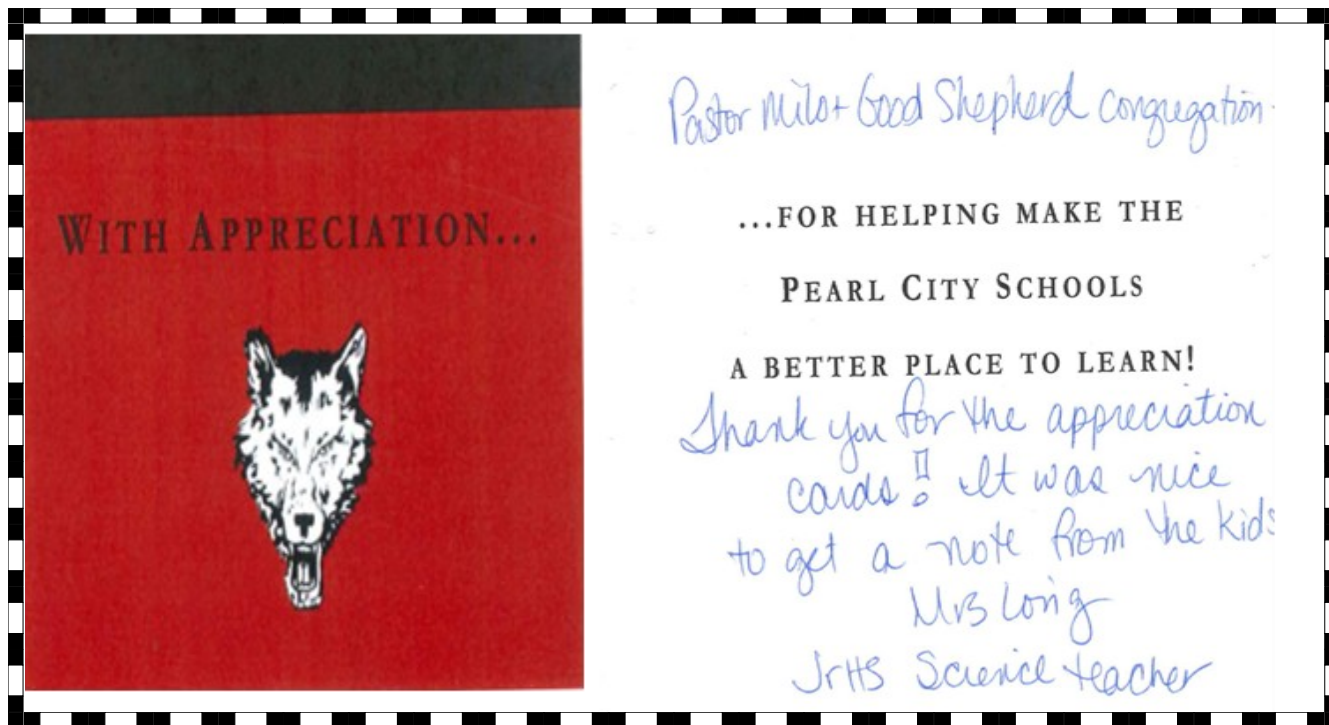 WITH APPRECIATION...
Pastor Milo + Good Shepherd congregation.
...FOR HELPING MAKE THE
PEARL CITY SCHOOLS
A BETTER PLACE TO LEARN!
Thank you for the appreciation
cards! It was nice
to get a note from the kids
Mrs Long
JrHS Science teacher